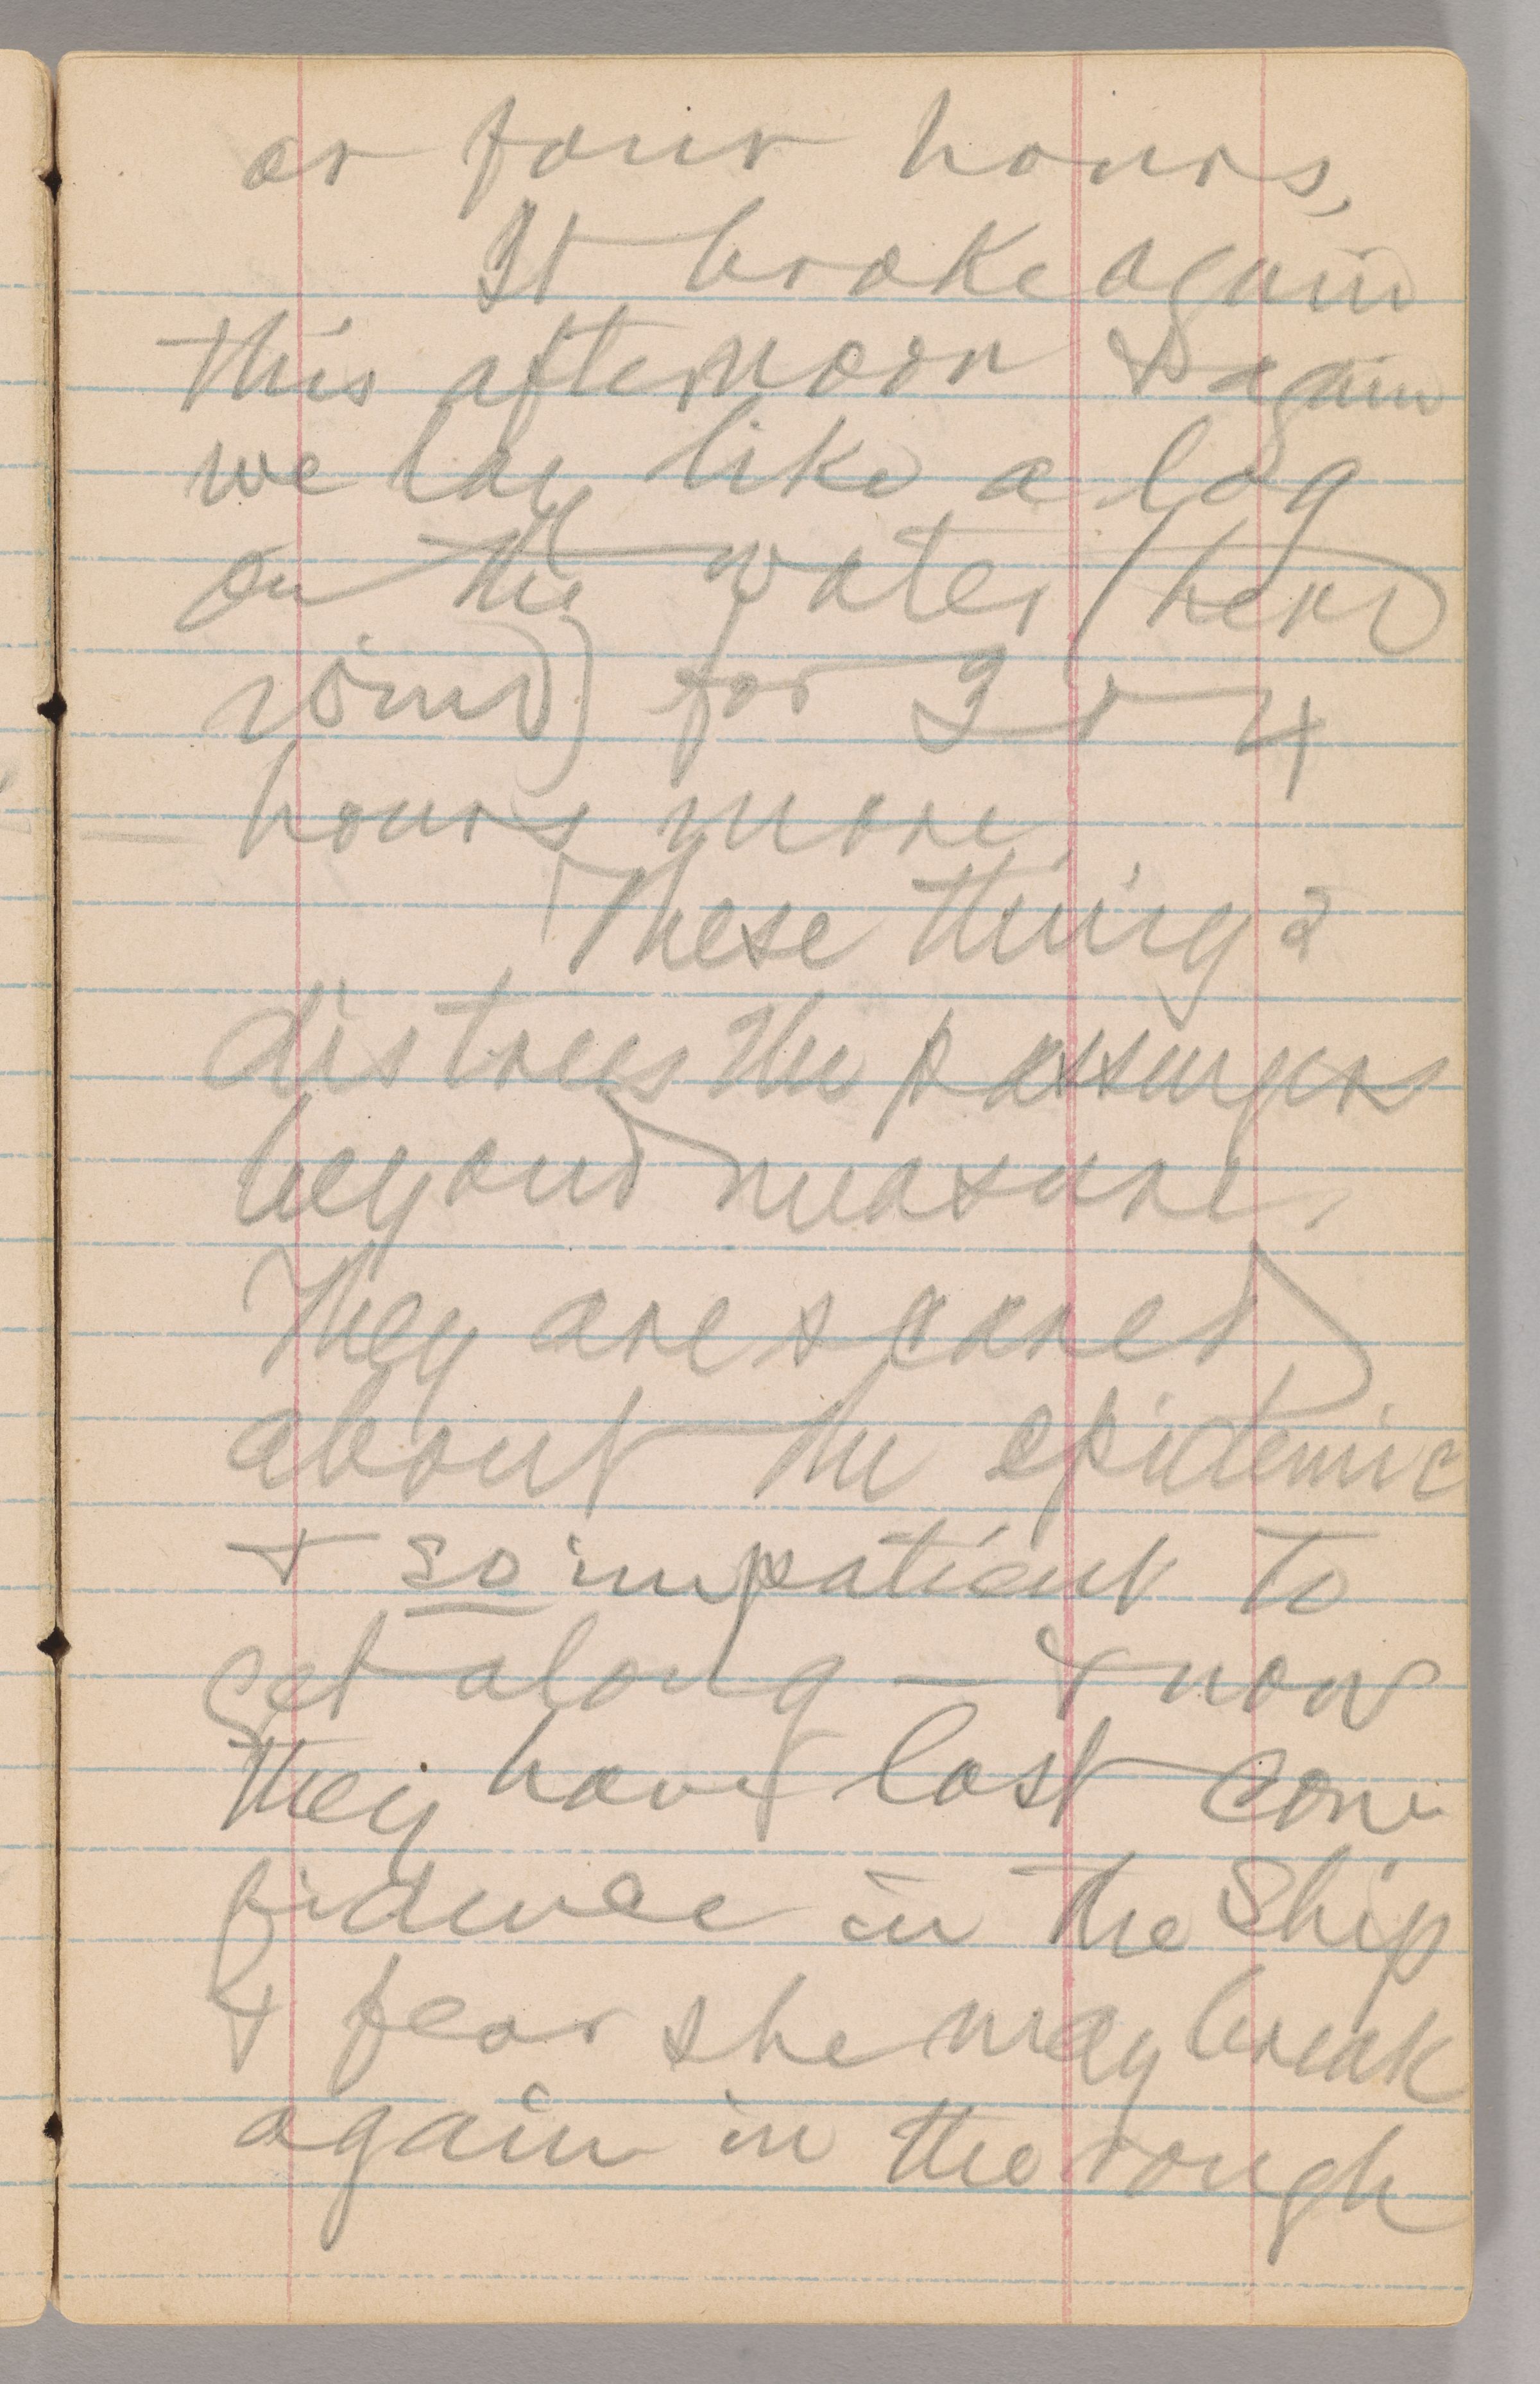 or four hours,
It broke again
this afternoon & again
we lay like a log
on the water (head
wind) for 3 or 4
hours more.
These things
distress the passengers
beyond measure.
They are scared
about the epidemic
& so impatient to
get along — & now
they have lost con-
fidence in the ship
& fear she may break
again in the rough